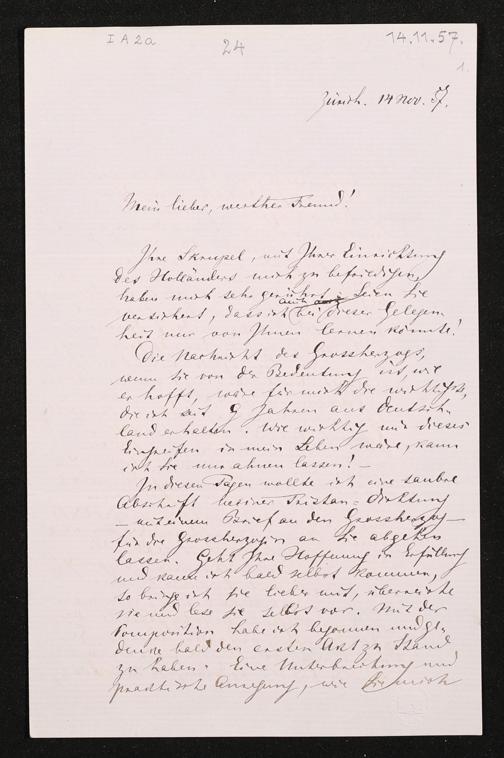 I A 2a
24
14.11.57.
1.
Zürich. 14 Nov. 57.
Mein lieber, werther Freund!
Ihre Skrupel, mit Ihrer Einrichtung
des Holländers mich zu befriedigen,
haben mich sehr gerührt: Seien Sie
auch
versichert, dass ich bei dieser Gelegen
heit nur von Ihnen lernen könnte!
Die Nachricht des Grossherzogs,
wenn sie von der Bedeutung ist, wie
er hofft, wäre für mich die wichtigste,
die ich seit 9 Jahren aus Deutsch-
land erhalten. Wie wichtig mir dieses
Eingreifen in mein Leben wäre, kann
ich Sie nur ahnen lassen! —
In diesen Tagen wollte ich eine saubre
Abschrift meiner Tristan=Dichtung
— mit einem Brief an den Grossherzog —
für die Grossherzogin an Sie abgehen
lassen. Geht Ihre Hoffnung in Erfüllung
und kann ich bald selbst kommen,
so bringe ich sie lieber mit, überreiche
sie und lese sie selbst vor. Mit der
Composition habe ich begonnen und ge-
denke bald den ersten Akt zu Stand
zu haben. Eine Unterbrechung und
praktische Anregung, wie sie mich